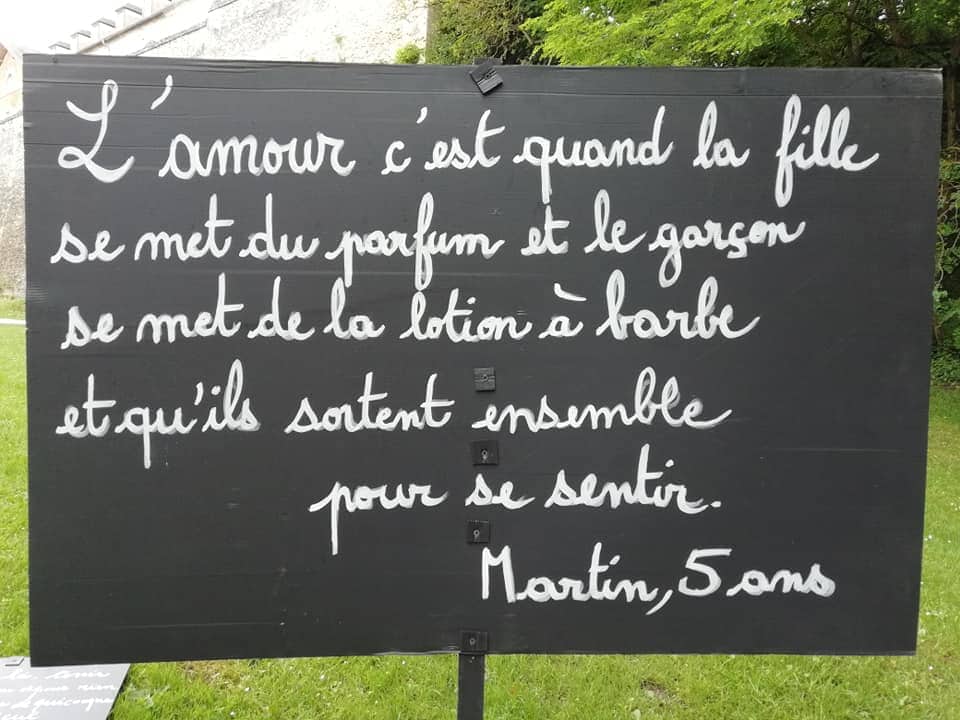 L'amour c'est quand la fille
se met du parfum et le garçon
se met de la lotion à barbe
et qu'ils sortent ensemble
pour se sentir.
Martin, 5 ans